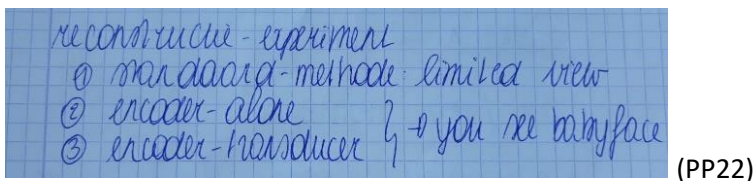 reconstructie-experiment
① standaard-methode: limited view
② encoder-alone
③ encoder-transducer } → you see babyface
(PP22)